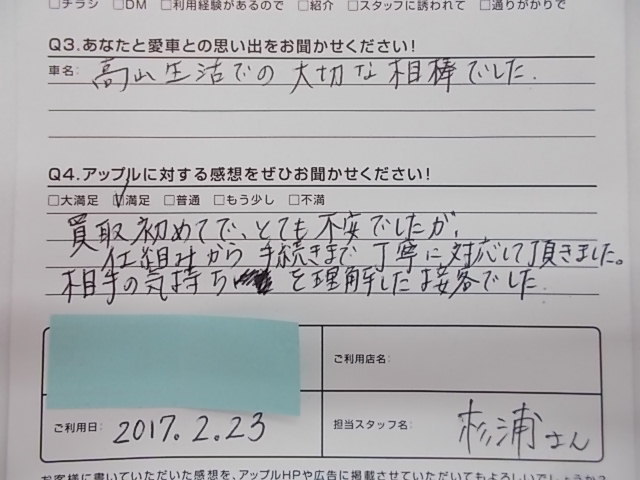 □チラシ □DM □利用経験があるので □紹介 □スタッフに誘われて □通りがかりで
Q3.あなたと愛車との思い出をお聞かせください!
車名: 高山生活での大切な相棒でした.
Q4.アップルに対する感想をぜひお聞かせください!
□大満足 ☑満足 □普通 □もう少し □不満
買取初めてで、とても不安でしたが、
仕組みから手続きまで丁寧に対応して頂きました。
相手の気持ちを理解した接客でした.
ご利用店名:
ご利用日: 2017.2.23
担当スタッフ名: 杉浦さん
お客様に書いていただいた感想を、アップルHPや広告に掲載させていただいてもよろしいでしょうか?